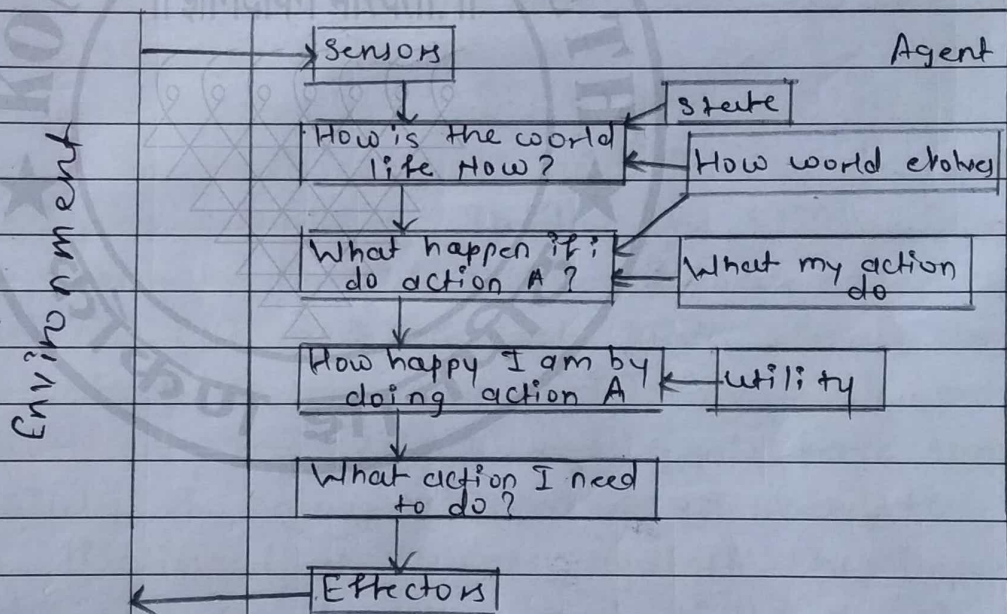 Sensors
Agent
State
How is the world
life How?
How world evolves
What happen if i
do action A?
What my action
do
Environment
How happy I am by
doing action A
utility
What action I need
to do?
Effectors